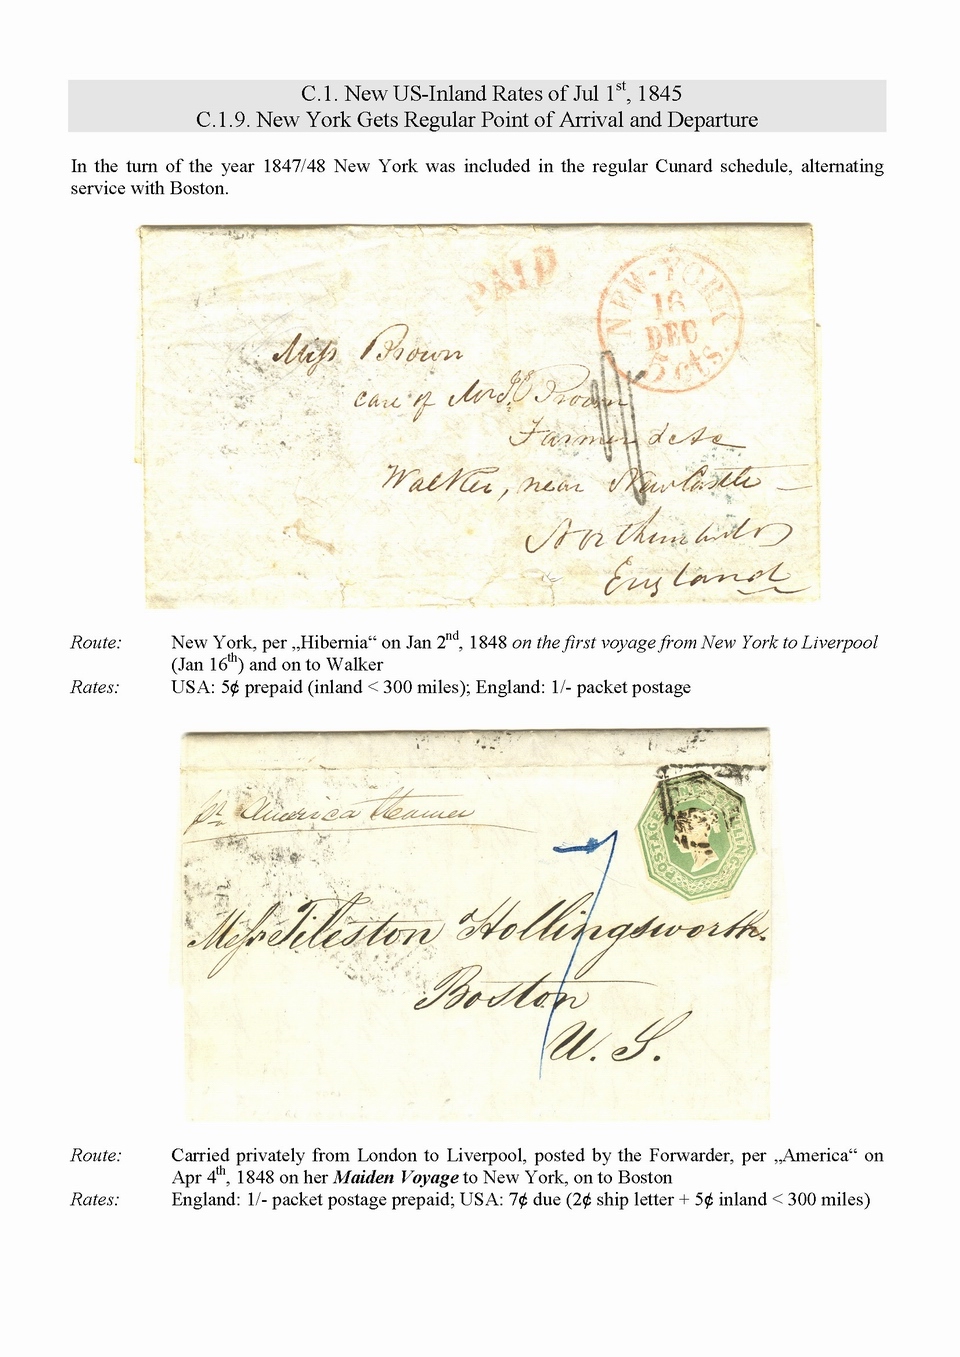 C.1. New US-Inland Rates of Jul 1st, 1845
C.1.9. New York Gets Regular Point of Arrival and Departure
In the turn of the year 1847/48 New York was included in the regular Cunard schedule, alternating
service with Boston.
PAID
NEW-YORK
16
DEC
5 cts.
Miss Brown
care of Mr J. Brown
Farmer &c &c
Walker, near NewCastle
Northumberld
England
Route: New York, per „Hibernia“ on Jan 2nd, 1848 on the first voyage from New York to Liverpool
(Jan 16th) and on to Walker
Rates: USA: 5¢ prepaid (inland < 300 miles); England: 1/- packet postage
pr America Steamer
POSTAGE
SHILLING
7
Messrs Tileston Hollingsworth.
Boston
U. S.
Route: Carried privately from London to Liverpool, posted by the Forwarder, per „America“ on
Apr 4th, 1848 on her Maiden Voyage to New York, on to Boston
Rates: England: 1/- packet postage prepaid; USA: 7¢ due (2¢ ship letter + 5¢ inland < 300 miles)